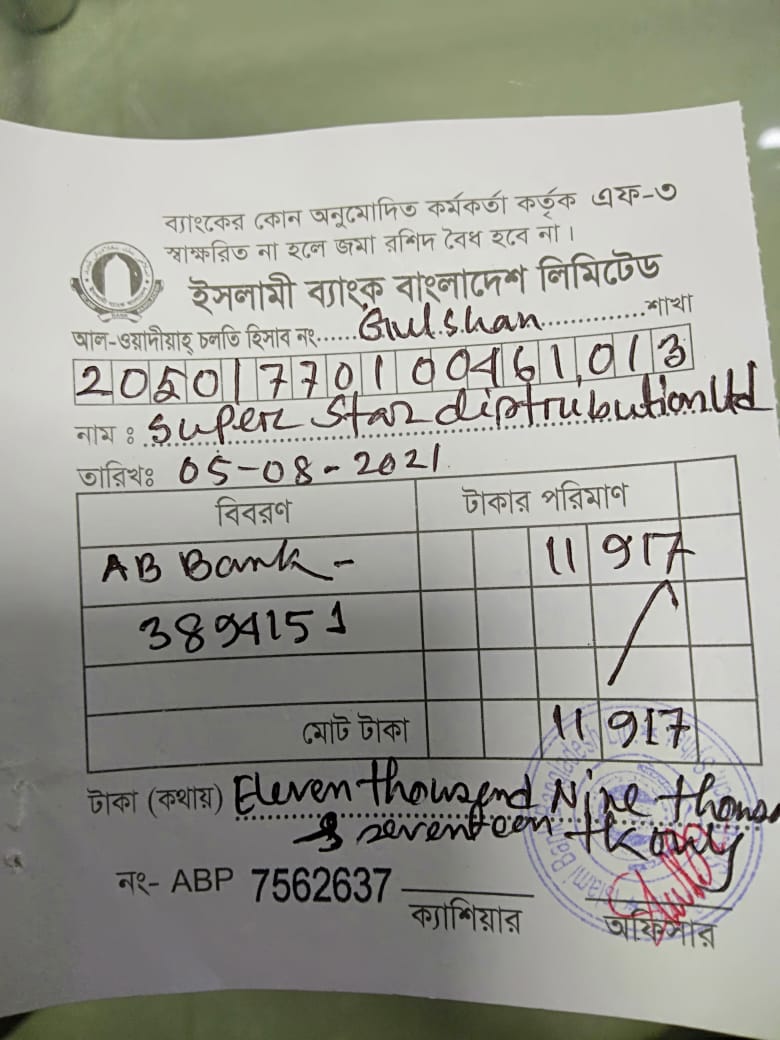 ব্যাংকের কোন অনুমোদিত কর্মকর্তা কর্তৃক এফ-৩
স্বাক্ষরিত না হলে জমা রশিদ বৈধ হবে না।
ইসলামী ব্যাংক বাংলাদেশ লিমিটেড
আল-ওয়াদীয়াহ্ চলতি হিসাব নং......Gulshan...............শাখা
20501770100461013
নাম : Super Star diptrubution Ltd
তারিখঃ 05-08-2021
বিবরণ টাকার পরিমাণ
AB Bank - 11 917
3894151
মোট টাকা 11 917
টাকা (কথায়) Eleven thousend Nine thousa
& seventeen tk only
নং- ABP 7562637
ক্যাশিয়ার অফিসার